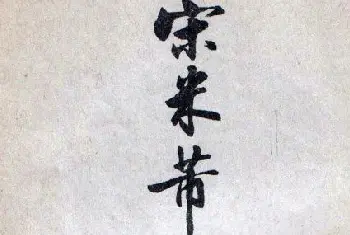 宋米芾